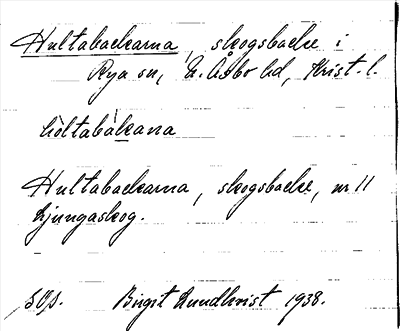 Hultabackarna, skogsbacke i
Rya sn, N. Åsbo hd, Krist. l.
hòltabàkana
Hultabackarna, skogsbacke, nr 11
Ljungaskog.
SOp.
Birgit Lundkvist 1938.